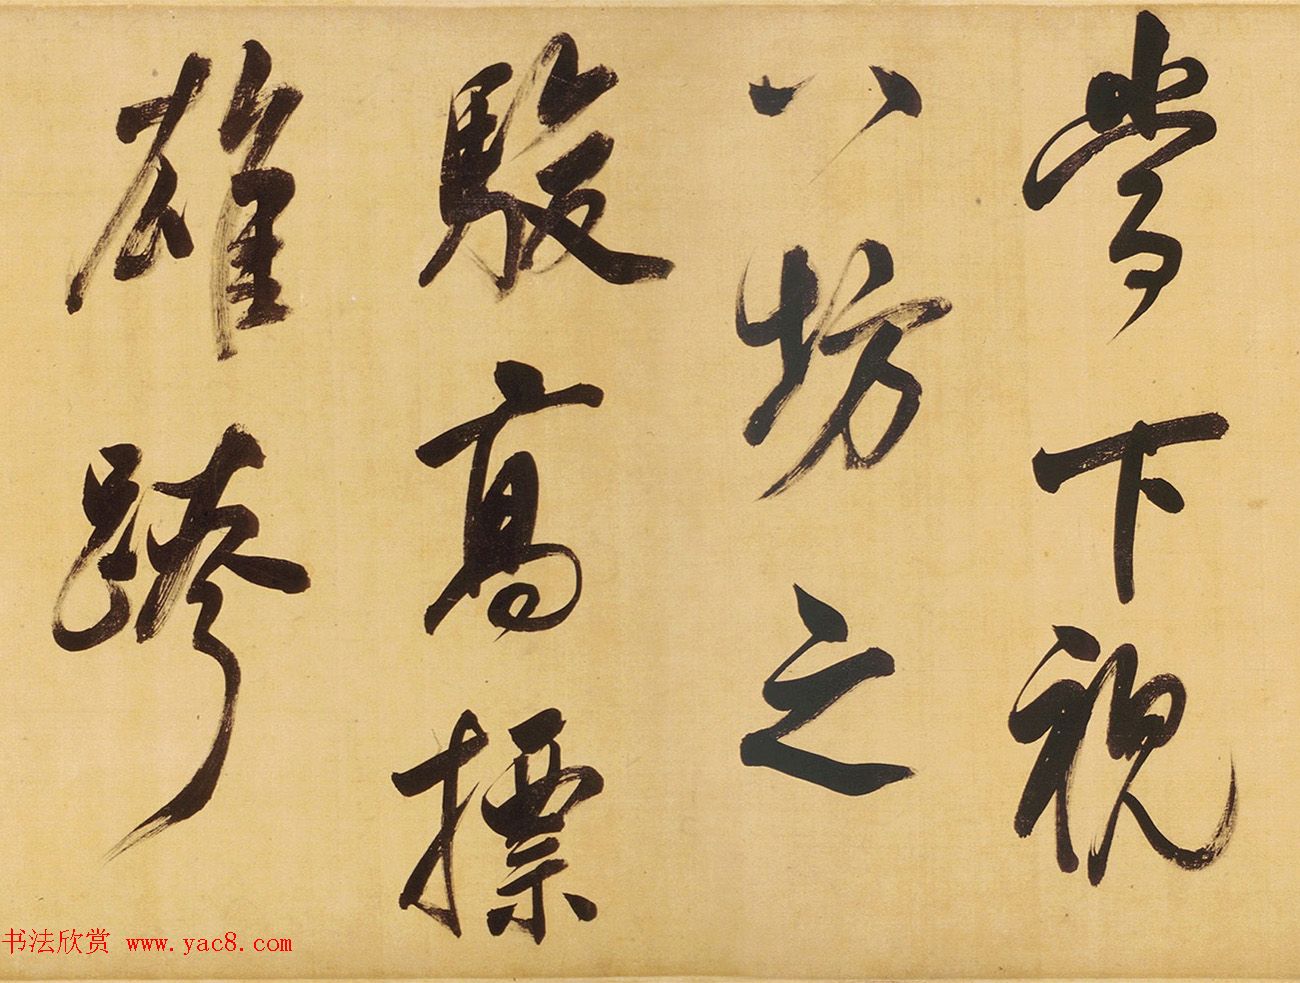 當下視
八坊之
駿高標
雄跨
书法欣赏 www.yac8.com